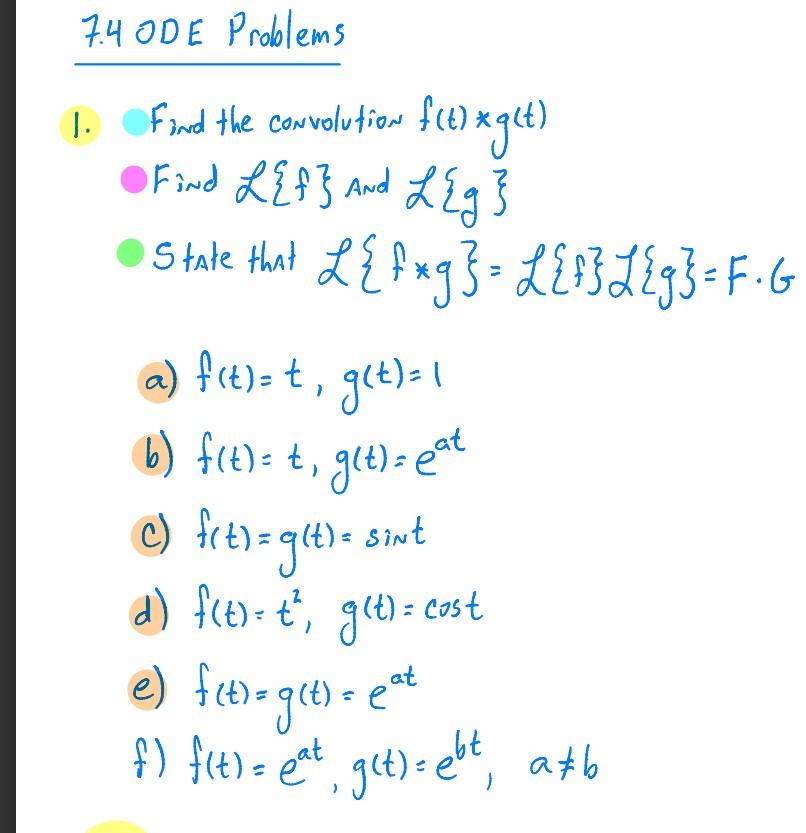 7.4 ODE Problems
1. Find the convolution f(t) * g(t)
Find ℒ{f} And ℒ{g}
State that ℒ{f*g} = ℒ{f}ℒ{g} = F·G
a) f(t) = t, g(t) = 1
b) f(t) = t, g(t) = e^{at}
c) f(t) = g(t) = sint
d) f(t) = t², g(t) = cost
e) f(t) = g(t) = e^{at}
f) f(t) = e^{at}, g(t) = e^{bt}, a≠b